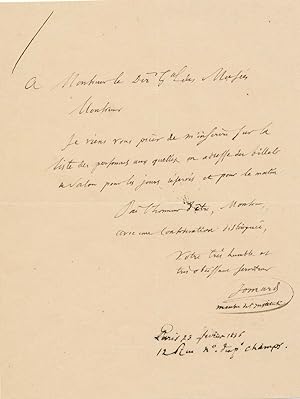 A Monsieur le Dir. Gal des Musées
Monsieur
Je viens vous prier de m'inscrire sur la
liste des personnes aux quelles on adresse des billets
de Salon pour les jours réservés et pour le matin
J'ai l'honneur d'être, Monsieur,
avec une considération distinguée,
Votre très humble et
très obéissant serviteur
Jomard
membre de l'institut
Paris 23 février 1836
12 Rue Ne des pts champs